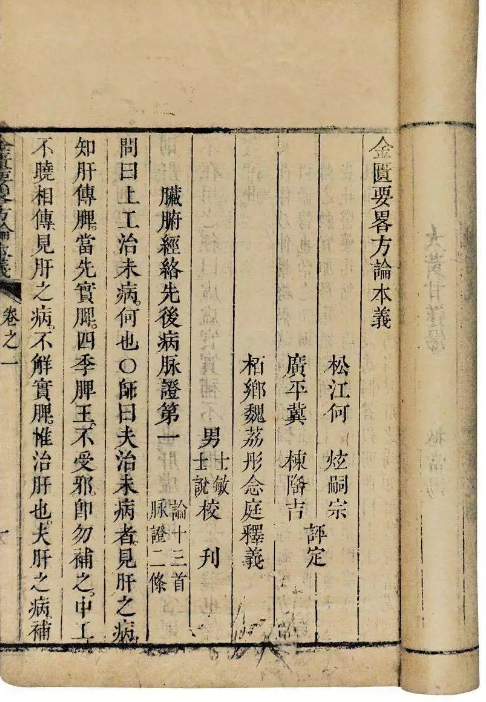 金匱要畧方論本義
松江何 炫嗣宗
廣平冀 棟隆吉 評定
柏鄉魏荔彤念庭釋義
男 士敏 士說 校刊
臟腑經絡先後病脉證第一 論十三首 脉證二條
問曰上工治未病何也○師曰夫治未病者見肝之病
知肝傳脾當先實脾四季脾王不受邪卽勿補之中工
不曉相傳見肝之病不解實脾惟治肝也夫肝之病補
金匱要畧方論本義
卷之一